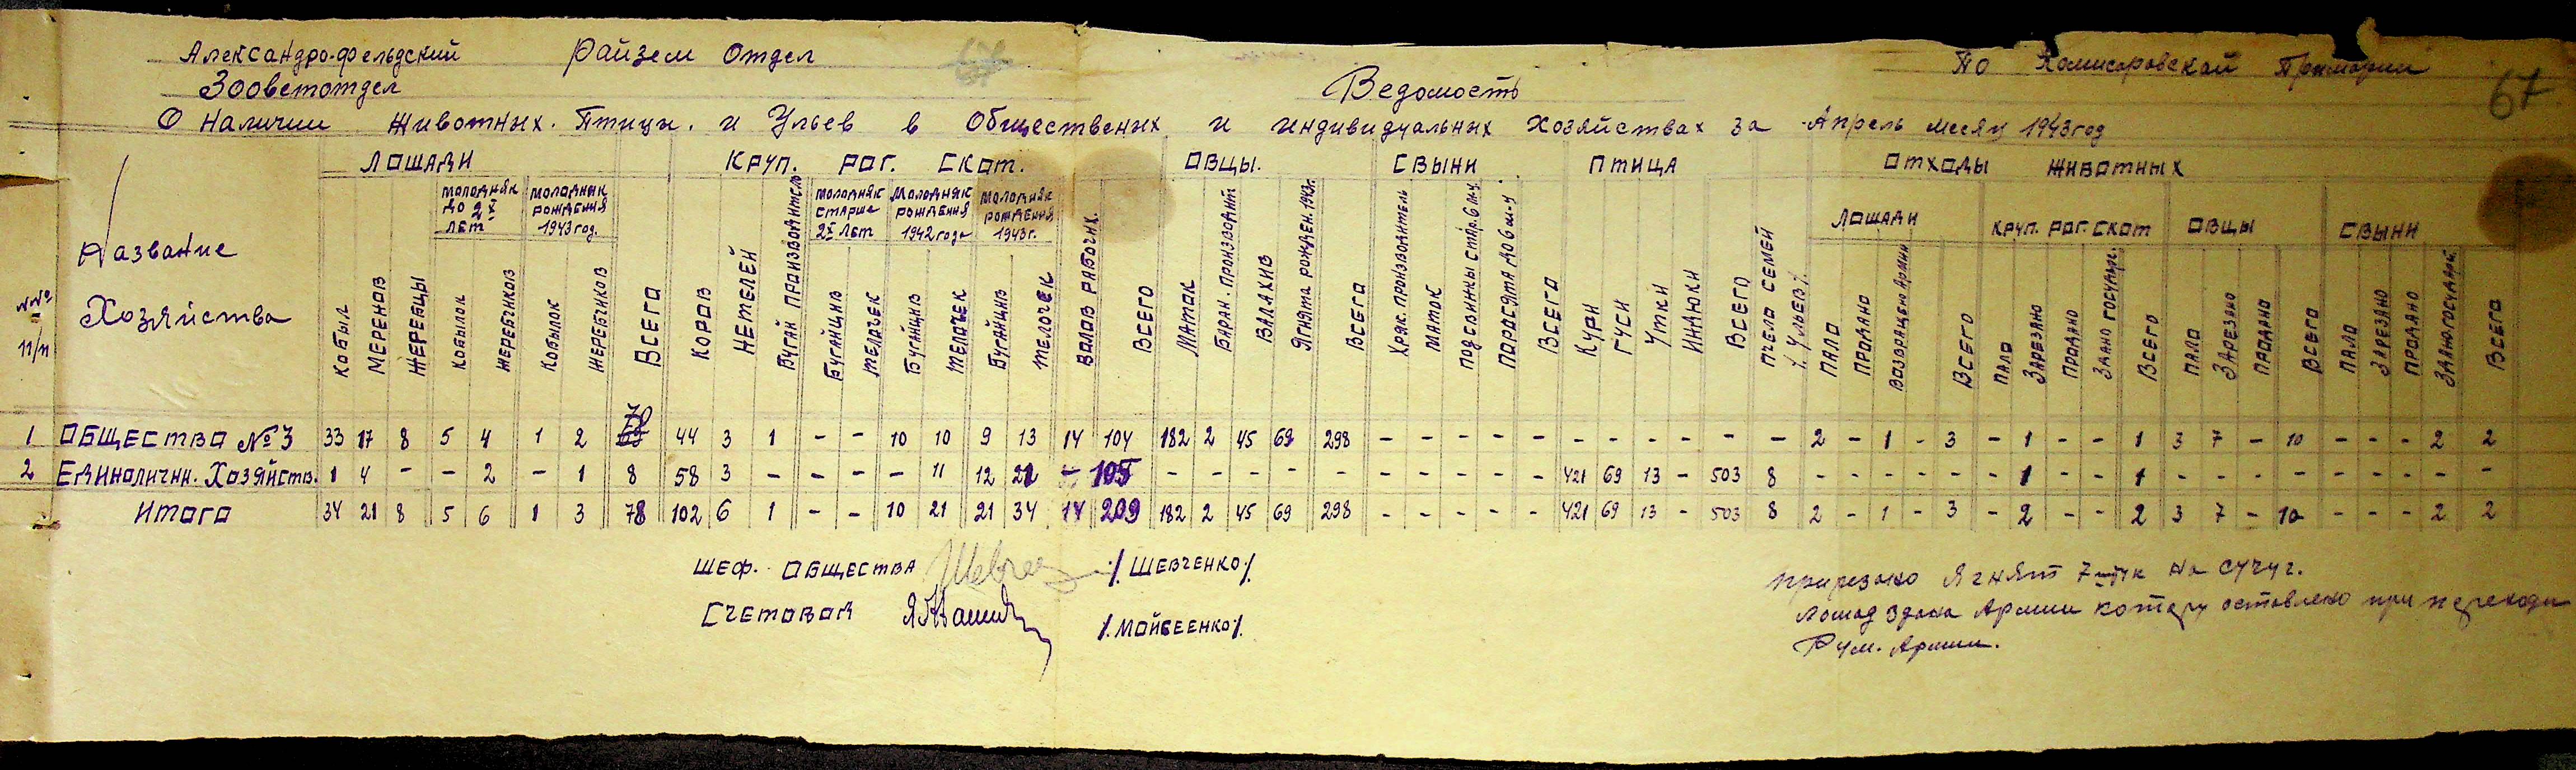 Александро-фельдский Райзем Отдел
По Комисаровской Примарии
Зооветотдел
Ведомость
67
О Наличии Животных. Птицы. и Ульев в Общественых и индивидуальных хозяйствах за Апрель месяц 1943 год
№№ п/п
Название Хозяйства
ЛОШАДИ
КРУП. РОГ. СКОТ.
ОВЦЫ.
СВЫНИ
ПТИЦА
ОТХОДЫ ЖИВОТНЫХ
МОЛОДНЯК ДО 2Х ЛЕТ
МОЛОДНЯК РОЖДЕНИЯ 1943 год.
МОЛОДНЯК СТАРШЕ 2Х ЛЕТ
МОЛОДНЯК РОЖДЕНИЯ 1942 года
МОЛОДНЯК РОЖДЕНИЯ 1943 г.
ЛОШАДИ
КРУП. РОГ. СКОТ
ОВЦЫ
СВЫНИ
КОБЫЛ
МЕРЕНОВ
ЖЕРЕБЦЫ
КОБЫЛОК
ЖЕРЕБЧИКОВ
КОБЫЛОК
ЖЕРЕБЧИКОВ
ВСЕГО
КОРОВ
НЕТЕЛЕЙ
БУГАЙ ПРОИЗВОДИТЕЛЬ
БУГАЙЦИВ
ТЕЛОЧЕК
БУГАЙЦИВ
ТЕЛОЧЕК
БУГАЙЦИВ
ТЕЛОЧЕК
ВОЛОВ РАБОЧИХ.
ВСЕГО
МАТОК
БАРАН. ПРОИЗВОДИТ
ВАЛАХИВ
ЯГНЯТА РОЖДЕН. 1943 г.
ВСЕГО
ХРЯК. ПРОИЗВОДИТЕЛЬ
МАТОК
ПОДСВИНКЫ СТАР. 6 м-ц
ПОРОСЯТА ДО 6 м-ц
ВСЕГО
КУРИ
ГУСИ
УТКИ
ИНДЮКИ
ВСЕГО
ПЧЕЛО СЕМЕЙ /. УЛЬЕВ ./
ПАЛО
ПРОДАНО
ВОЗВРАЩЕНО АРМИИ
ВСЕГО
ПАЛО
ЗАРЕЗАНО
ПРОДАНО
ЗДАНО ГОСУДАР.
ВСЕГО
ПАЛО
ЗАРЕЗАНО
ПРОДАНО
ВСЕГО
ПАЛО
ЗАРЕЗАНО
ПРОДАНО
ЗДАНО ГОСУДАР.
ВСЕГО
1 ОБЩЕСТВО № 3 33 17 8 5 4 1 2 70 44 3 1 - - 10 10 9 13 14 104 182 2 45 69 298 - - - - - - - - - - - 2 - 1 - 3 - 1 - - 1 3 7 - 10 - - - 2 2
2 ЕДИНОЛИЧНИ. ХОЗЯЙСТВ. 1 4 - - 2 - 1 8 58 3 - - - - 11 12 21 - 105 - - - - - - - - - - 421 69 13 - 503 8 - - - - - - 1 - - 1 - - - - - - - - -
ИТОГО 34 21 8 5 6 1 3 78 102 6 1 - - 10 21 21 34 14 209 182 2 45 69 298 - - - - - 421 69 13 - 503 8 2 - 1 - 3 - 2 - - 2 3 7 - 10 - - - 2 2
ШЕФ. ОБЩЕСТВА /. ШЕВЧЕНКО ./
СЧЕТОВОД /. МОЙСЕЕНКО ./
прирезано Ягнят 7 штук на сучуг.
лошад здана Армии котору оставлено при переходи
Рум. Армии.